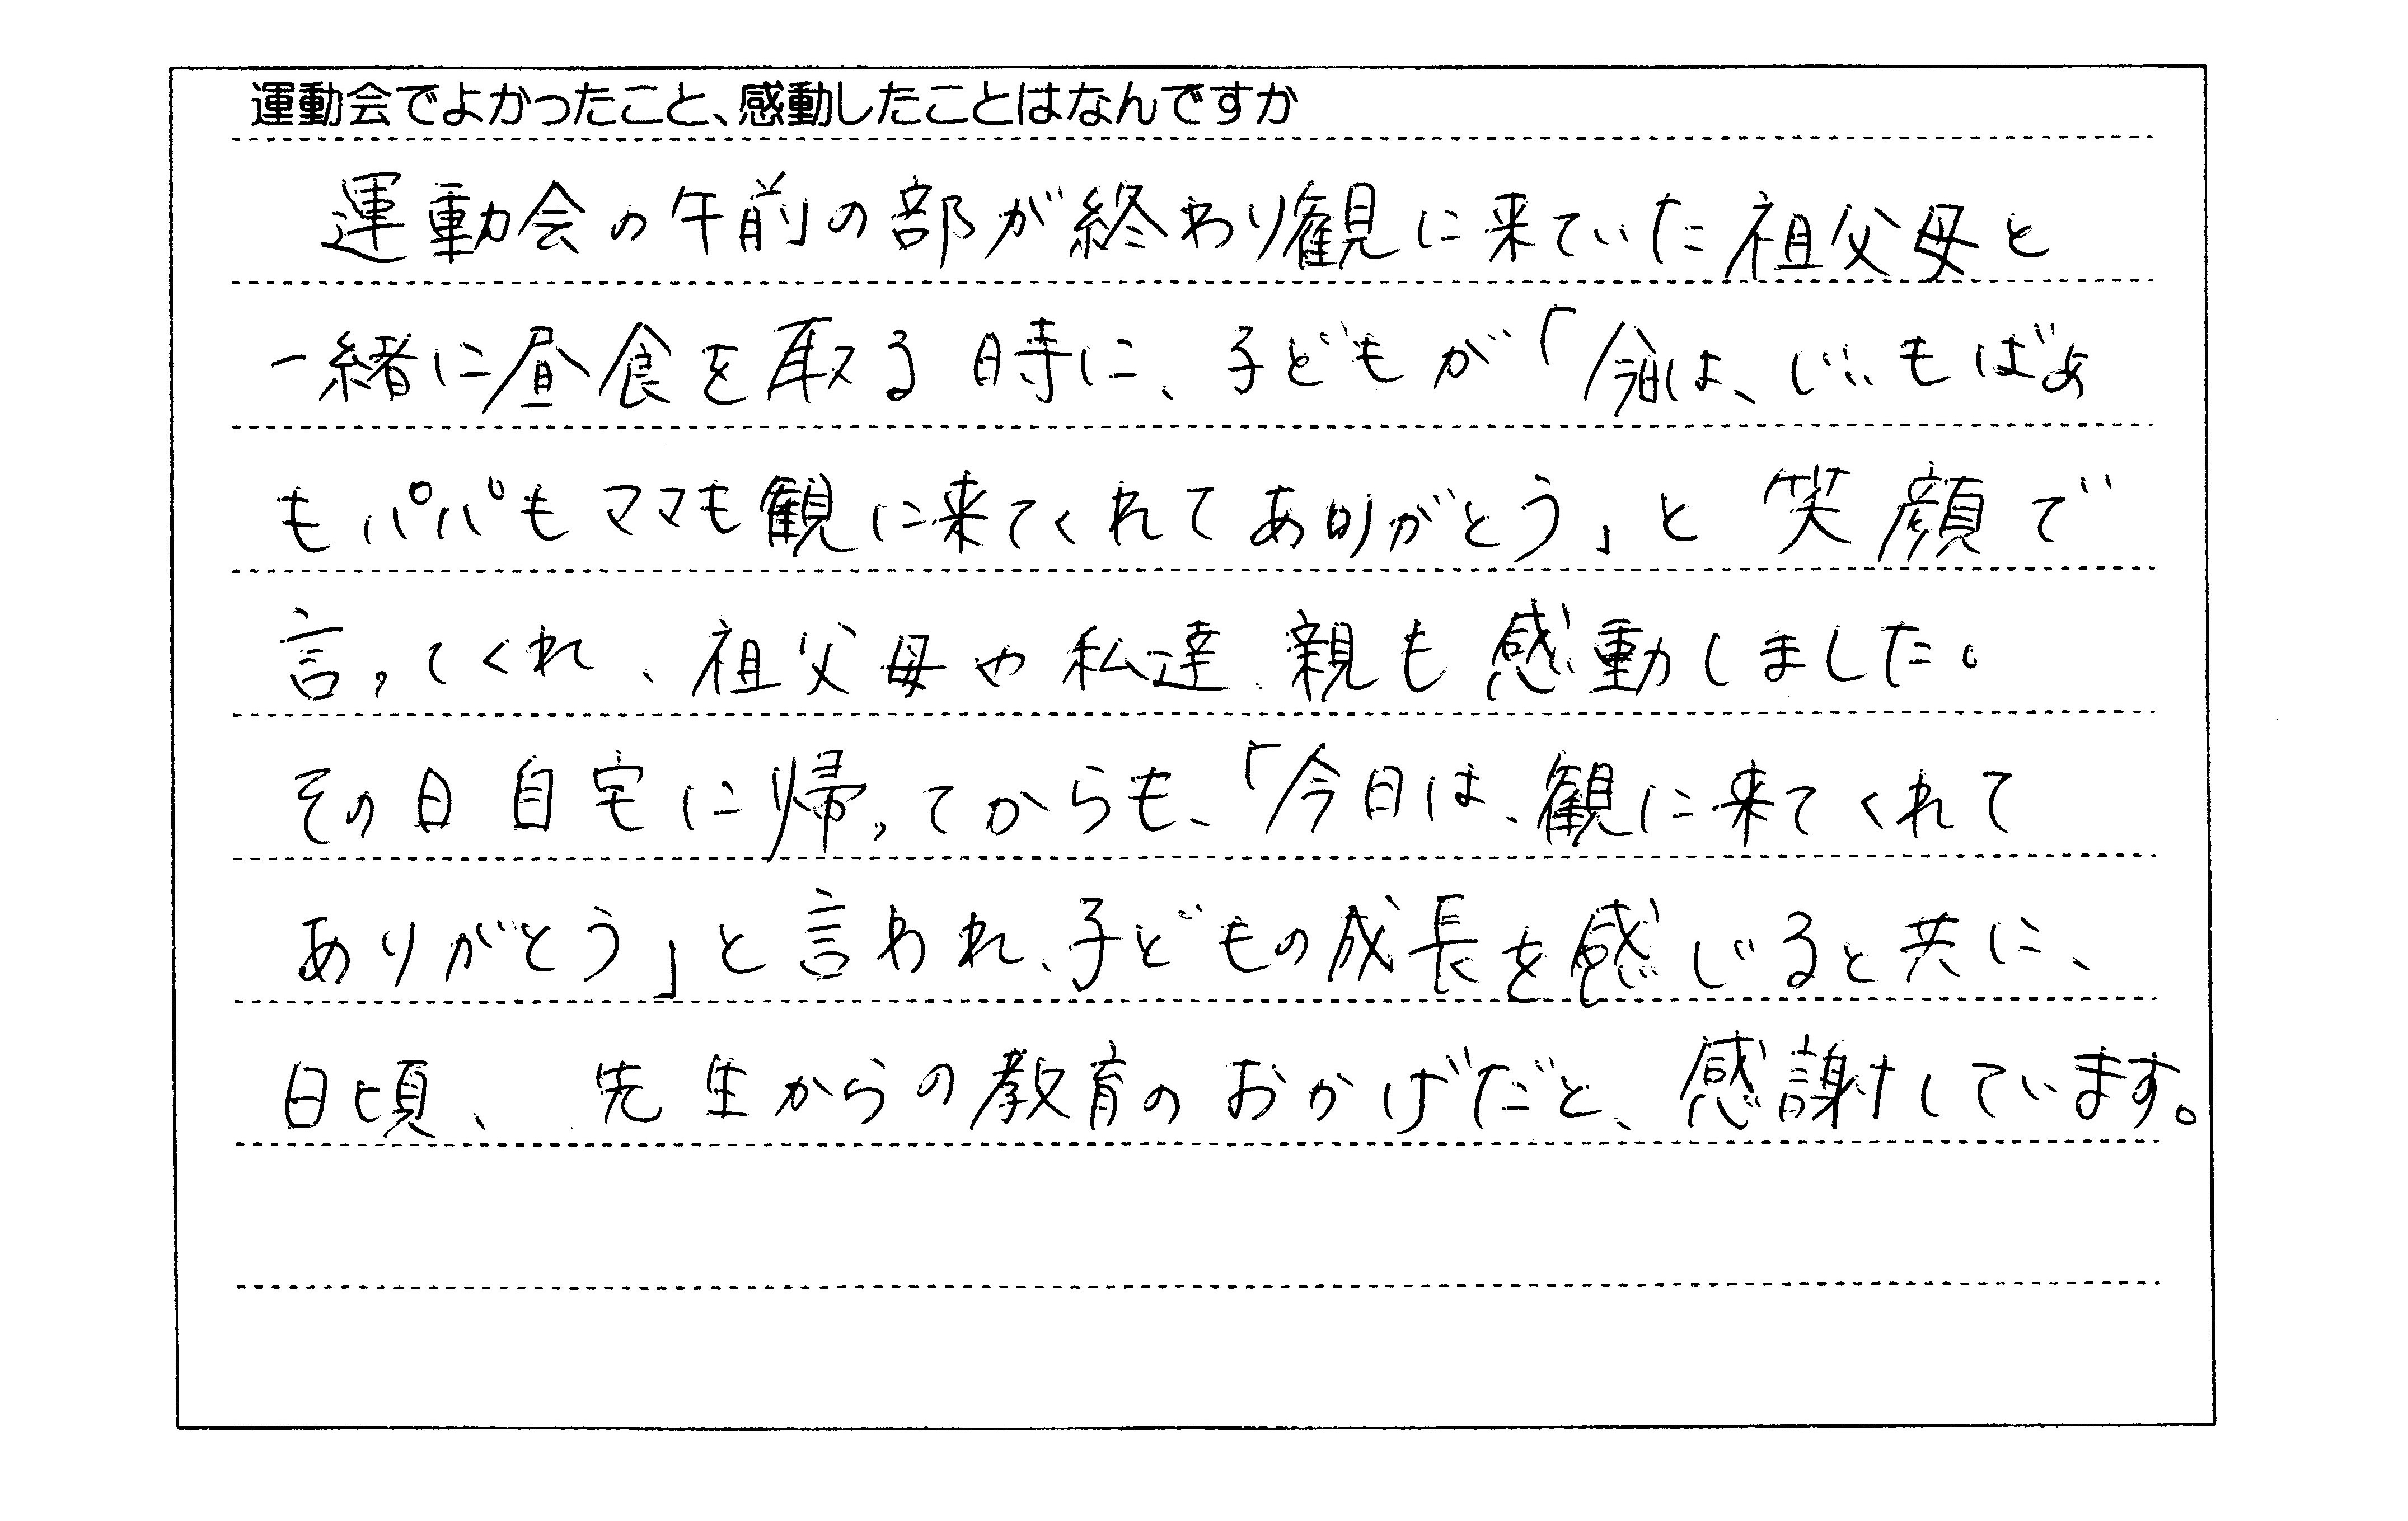 運動会でよかったこと、感動したことはなんですか
運動会の午前の部が終わり観に来ていた祖父母と
一緒に昼食を取る時に、子どもが「今日は、じぃもばぁ
もパパもママも観に来てくれてありがとう」と笑顔で
言ってくれ、祖父母や私達親も感動しました。
その日自宅に帰ってからも、「今日は、観に来てくれて
ありがとう」と言われ、子どもの成長を感じると共に、
日頃、先生からの教育のおかげだと、感謝しています。